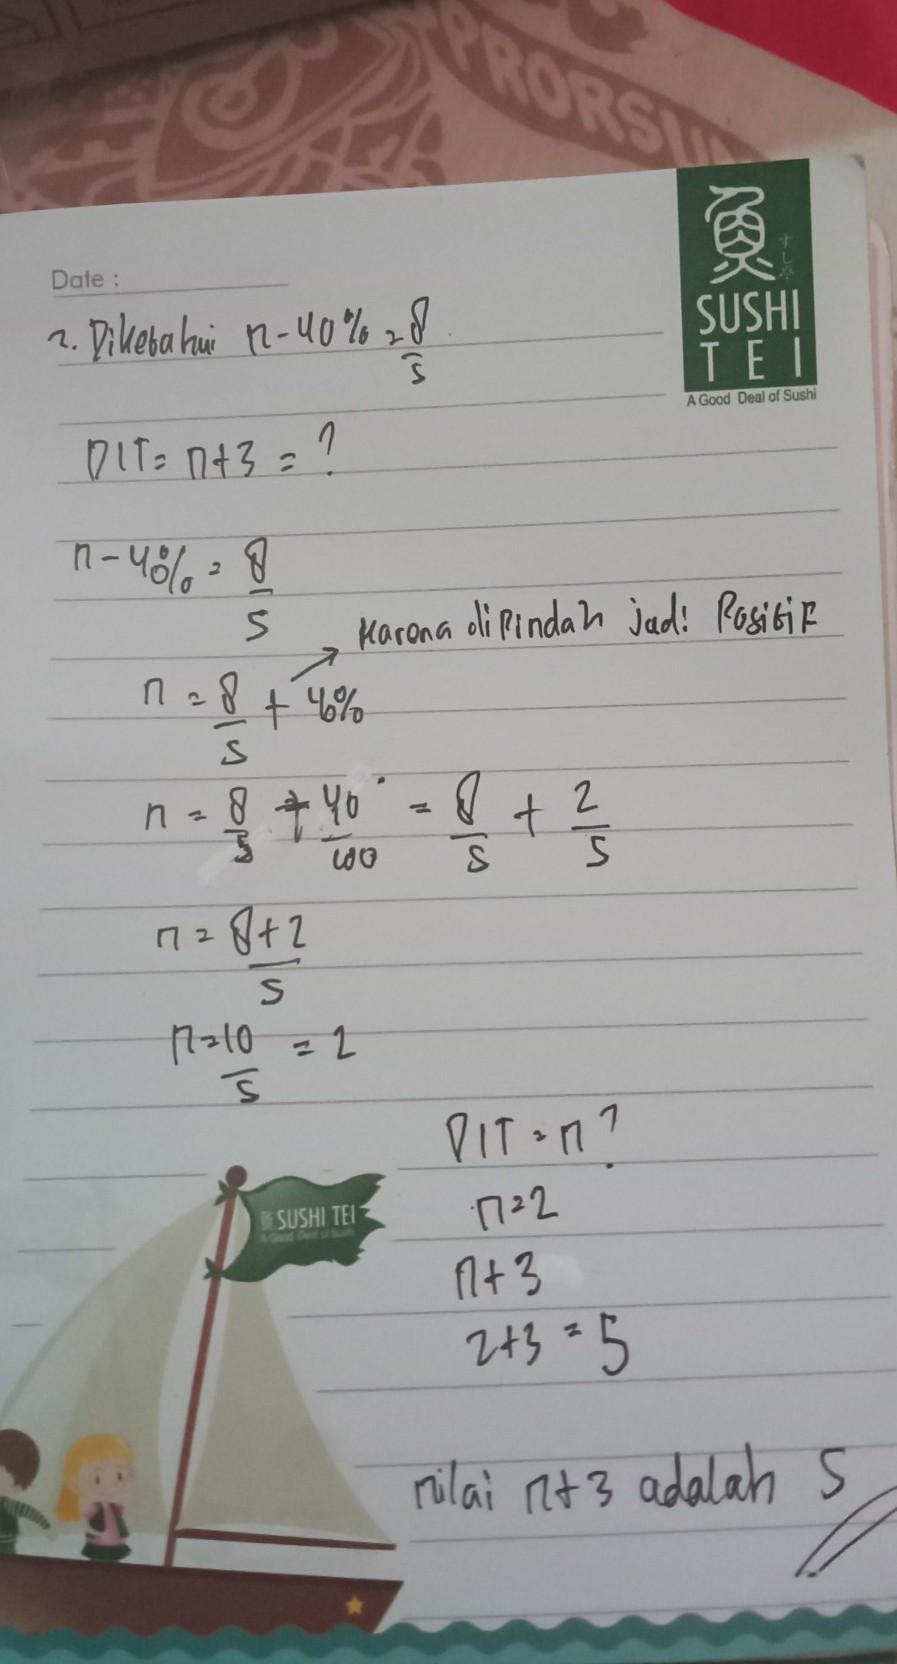 PRORSU
魚
すし亭
SUSHI
TEI
A Good Deal of Sushi
Date :
2. Diketahui n - 40% = 8/5
DIT = n+3 = ?
n - 40% = 8/5
Karena diPindah jadi Positif
n = 8/5 + 40%
n = 8/5 + 40/100 = 8/5 + 2/5
n = 8+2/5
n = 10/5 = 2
DIT = n?
n = 2
SUSHI TEI
A Good Deal of Sushi
n+3
2+3 = 5
nilai n+3 adalah 5